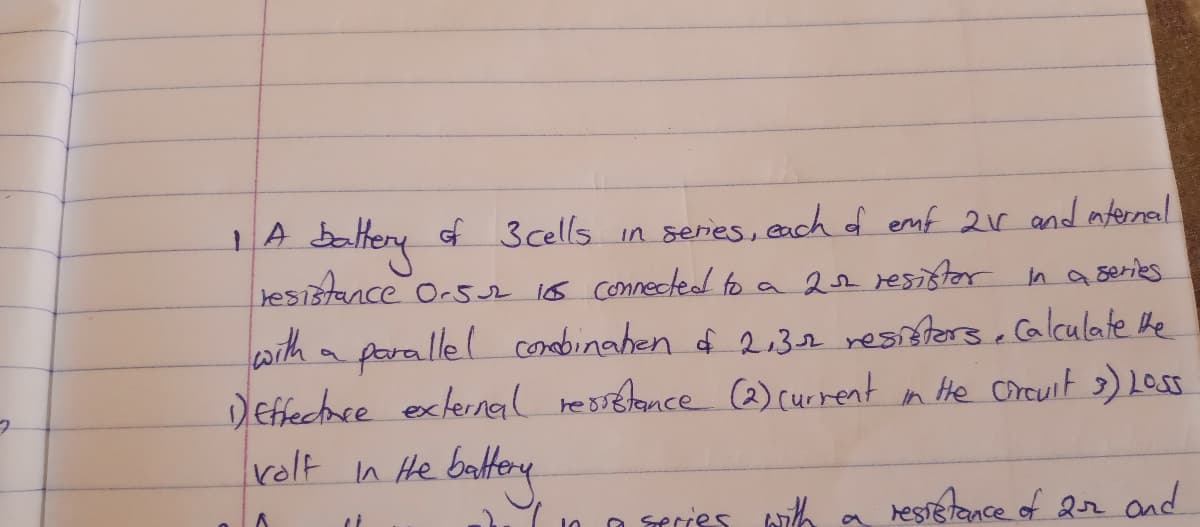 1 A battery of 3cells in series, each of emf 2V and internal
resistance 0.5Ω is connected to a 2Ω resistor in a series
with a parallel combination of 2,3Ω resistors. Calculate the
1) Effective external resistance (2) current in the circuit 3) Loss
volt in the battery
in a series with a resistance of 2Ω and